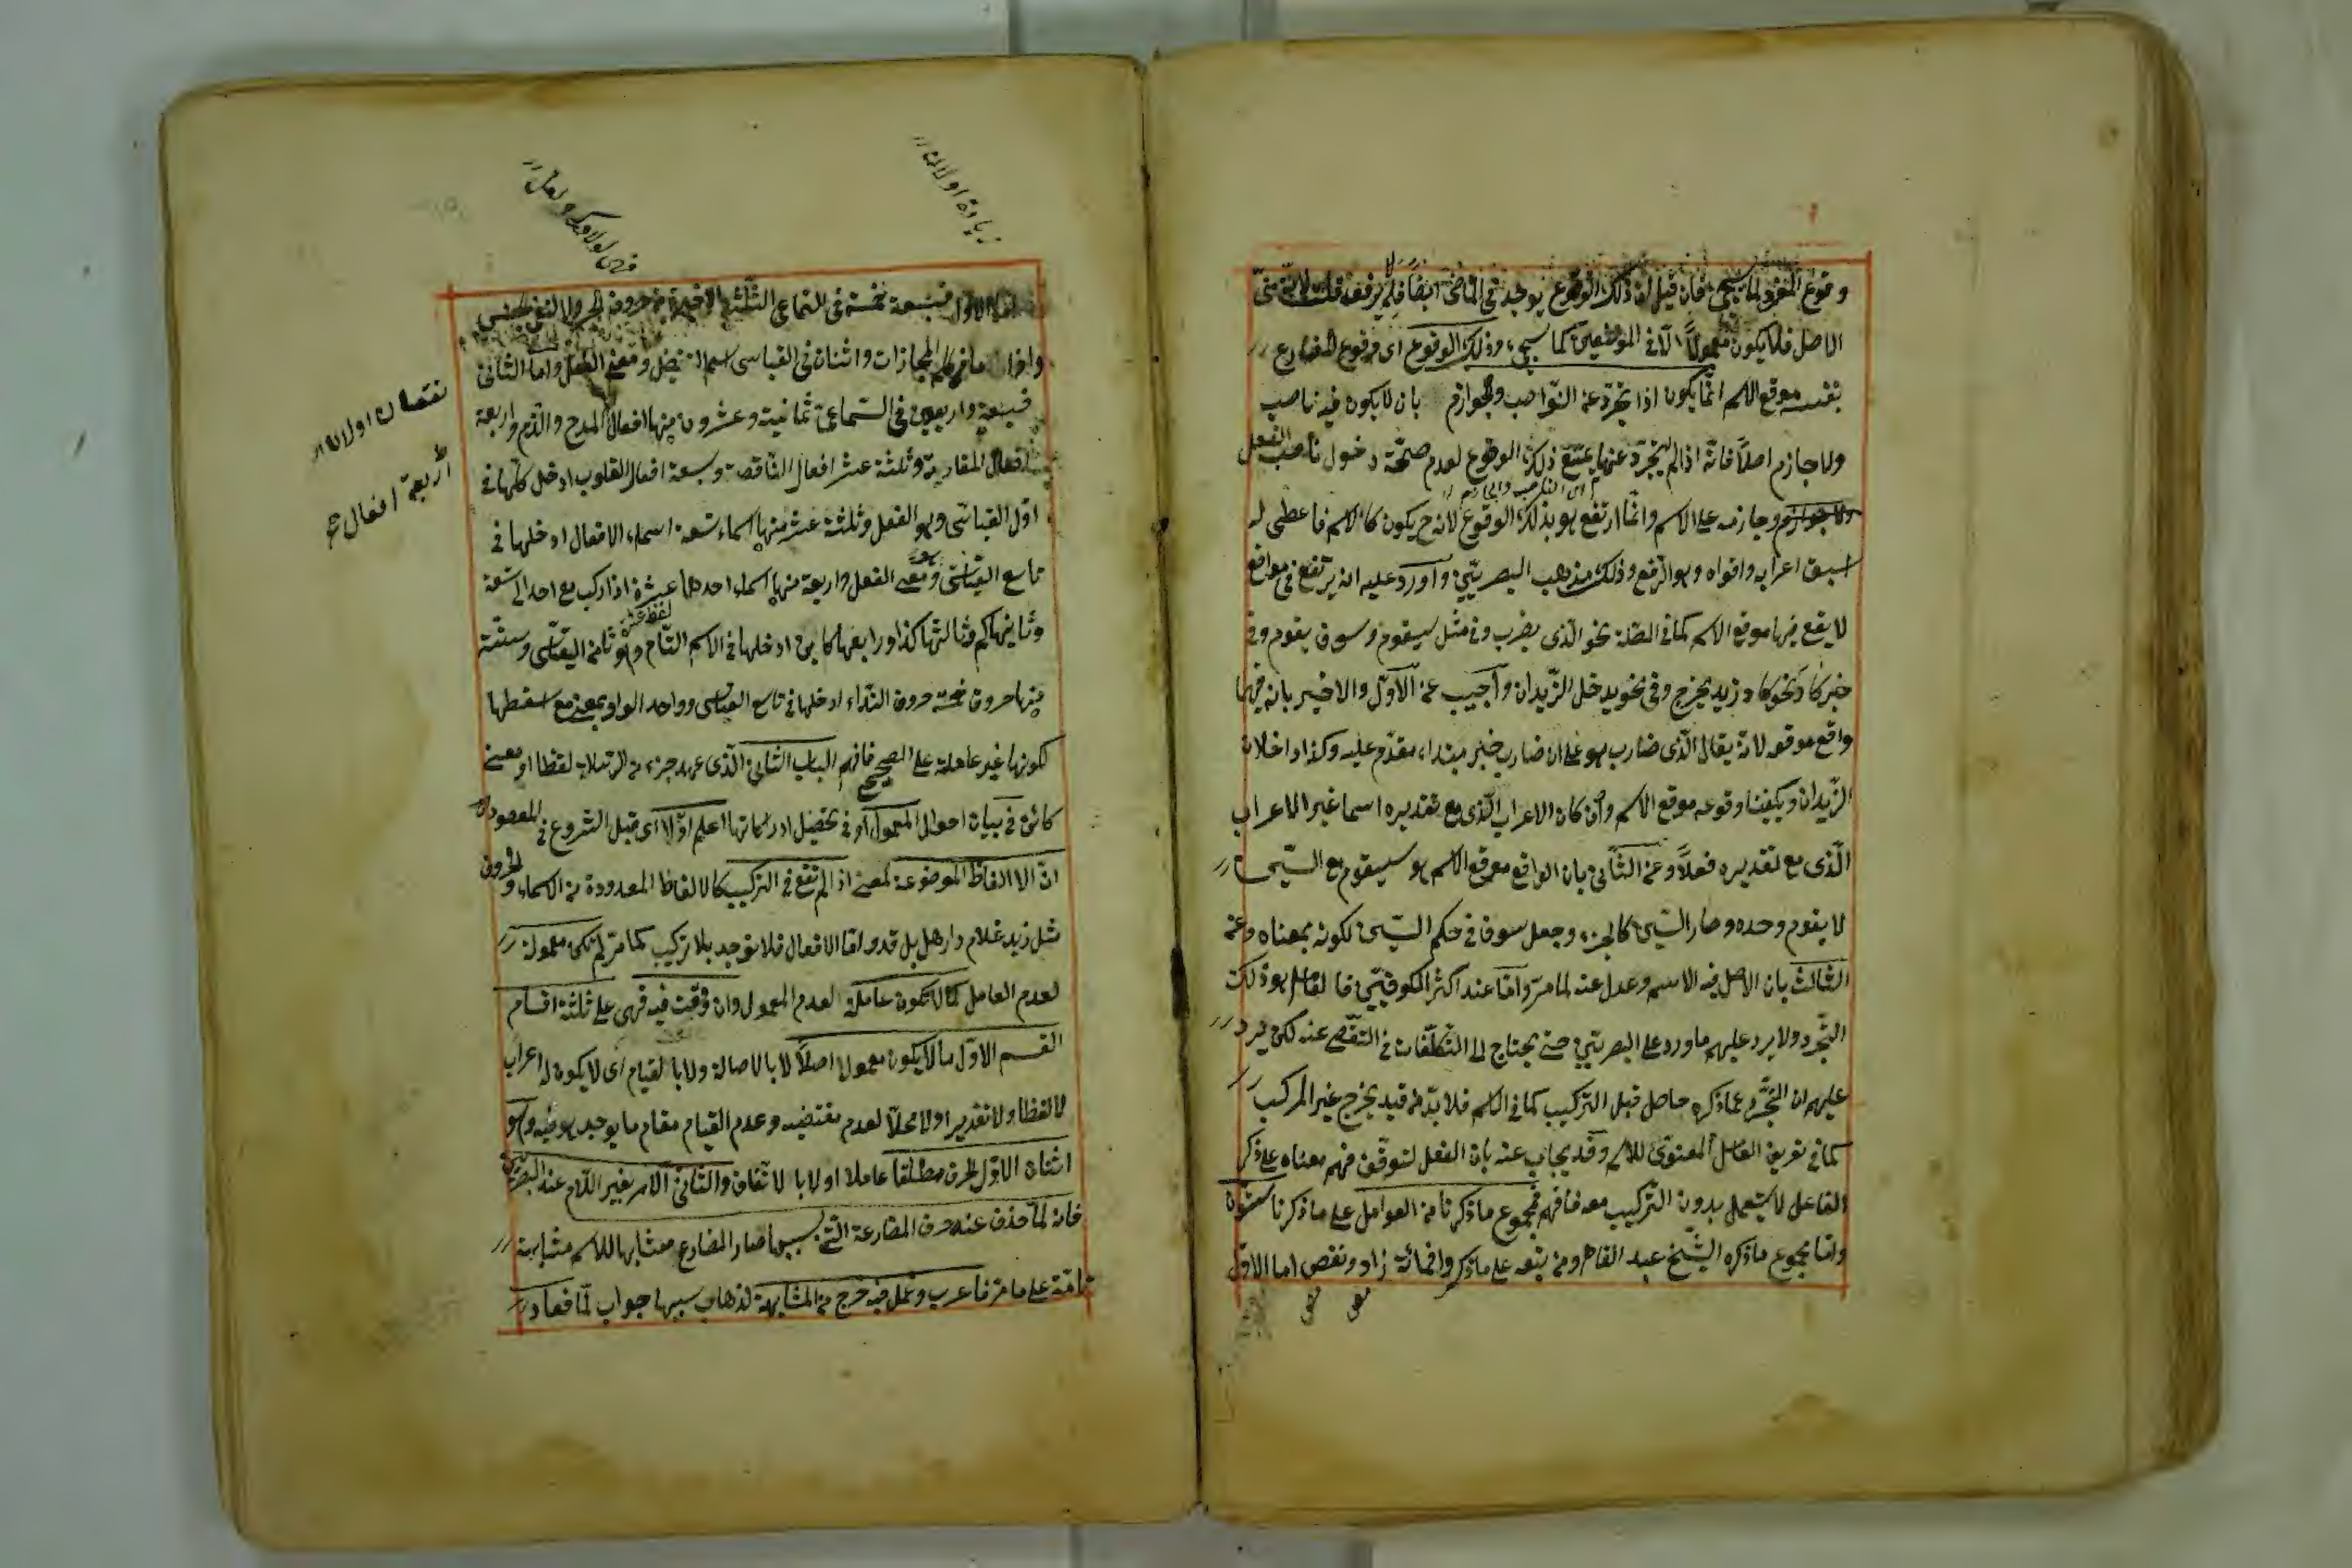 وقوع المفرد لما سيجيء فان قيل ان ذلك الوقوع يوجد في الماضي ايضاً فلم لا يرفعه قلت لانه مبني
الاصل فلا يكون معمولاً الا في الموضعين كما سيجيء وذلك الوقوع اى وقوع المضارع
بنفسه موقع الاسم انما يكون اذا تجرد عن النواصب والجوازم بان لا يكون فيه ناصب
ولا جازم اصلاً فانه اذا لم يتجرد عنها يمتنع ذلك الوقوع لعدم صحة دخول ناصب الفعل
اى الناصب والجازم
وجازمه على الاسم وانما ارتفع هو بذلك الوقوع لانه ح يكون كالاسم فاعطى له
اسبق اعرابه واقواه وهو الرفع وذلك مذهب البصريين واورد عليه انه يرتفع في مواقع
لا يقع فيها موقع الاسم كما في الصلة نحو الذى يضرب وفي مثل سيقوم وسوف يقوم وفي
خبر كاد نحو كاد زيد يخرج وفي نحو يدخل الزيدان واجيب عن الاول والاخير بانه فيهما
واقع موقعه لانه يقال الذى ضارب هو على ان ضارب خبر مبتداء مقدم عليه وكذا داخلان
الزيدان ويكفينا وقوعه موقع الاسم وان كان الاعراب الذى مع تقديره اسما غير الاعراب
الذى مع تقديره فعلاً وعن الثاني بان الواقع موقع الاسم هو سيقوم مع السين
لا يقوم وحده وصار السين كالجزء وجعل سوف في حكم السين لكونه بمعناه وعن
الثالث بان الاصل فيه الاسم وعدل عنه لما مر واما عند اكثر الكوفيين فالعامل هو ذلك
التجرد ولا يرد عليهم ما ورد على البصريين حتى يحتاج الى التكلفات في التفصى عنه لكن يرد
عليهم ان التجرد عما ذكره حاصل قبل التركيب كما في الاسم فلا بد من قيد يخرج غير المركب
كما في تعريف العامل المعنوى للاسم وقد يجاب عنه بان الفعل لتوقف فهم معناه على ذكر
الفاعل لا يستعمل بدون التركيب معه فافهم فمجموع ما ذكرنا من العوامل على ما ذكرنا ستون
واما مجموع ما ذكره الشيخ عبد القاهر ومن تبعه على ما ذكروا فمائة زاد ونقص اما الاول
زيادة اولانلر
اما الاول فسبعة خمسة في السماعي الثلثة الاخيرة من حروف الجر ولا لنفي الجنس
واذا ما من كلم المجازات واثنان في القياسى اسم التفضيل ومعنى الفعل واما الثاني
فسبعة واربعون في السماعي ثمانية وعشرون منها افعال المدح والذم واربعة
افعال المقاربة وثلثة عشر افعال الناقصة وسبعة افعال القلوب ادخل كلها في
اول القياسى وهو الفعل وثلثة عشر منها اسماء تسعة اسماء الافعال ادخلها في
تاسع القياسى وهو معنى الفعل واربعة منها اسماء احدها عشرة اذا ركب مع احد الى تسعة
لفظ عشرة
وثانيها كم وثالثها كذا ورابعها كاين ادخلها في الاسم التام وهو ثامن القياسى وستة
منها حروف خمسة حروف النداء ادخلها في تاسع القياسى وواحد الواو بمعنى مع اسقطها
لكونها غير عاملة على الصحيح فافهم الباب الثاني الذى عهد جزء من الرسالة لفظا او معنى
كائن في بيان احوال المعمول او في تحصيل ادراكاتها اعلم اولا اى قبل الشروع في المقصود
ان الالفاظ الموضوعة لمعنى اذا لم تقع في التركيب كالالفاظ المعدودة من الاسماء والحروف
مثل زيد غلام دار هل بل قد واما الافعال فلا توجد بلا تركيب كما مر لم تكن معمولة
لعدم العامل كما لا تكون عاملة لعدم المعمول وان وقعت فيه فهى على ثلثة اقسام
القسم الاول ما لا يكون معمولا اصلاً لا بالاصالة ولا بالقيام اى لا يكون له اعراب
لا لفظا ولا تقديرا ولا محلاً لعدم مقتضيه وعدم القيام مقام ما يوجد هو فيه وهو
اثنان الاول الحرف مطلقا عاملا اولا بالاتفاق والثاني الامر بغير اللام عند البصريين
فانه لما حذف عنه حرف المضارعة التى بسببها صار المضارع مشابها للاسم مشابهة
تامة على ما مر فاعرب وعمل فيه خرج من المشابهة لذهاب سببها جواب لما فعاد
نقصان اولانلر
اربعة افعال